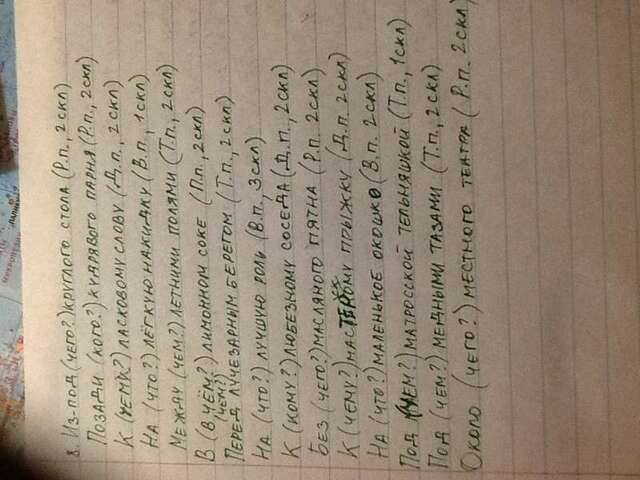 8. Из-под (чего?) круглого стола (Р.п., 2 скл)
Позади (кого?) кудрявого парня (Р.п., 2 скл)
К (чему?) ласковому слову (Д.п., 2 скл)
На (что?) лёгкую накидку (В.п., 1 скл)
Между (чем?) летними полями (Т.п., 2 скл)
В (в чём?) лимонном соке (П.п., 2 скл)
Перед (чем?) лучезарным берегом (Т.п., 2 скл)
На (что?) лучшую роль (В.п., 3 скл)
К (кому?) любезному соседа (Д.п., 2 скл)
Без (чего?) масляного пятна (Р.п. 2 скл)
К (чему?) мастерскому прыжку (Д.п. 2 скл)
На (что?) маленькое окошко (В.п. 2 скл)
Под (чем?) матросской тельняшкой (Т.п., 1 скл)
Под (чем?) медными тазами (Т.п., 2 скл)
Около (чего?) местного театра (Р.п. 2 скл)